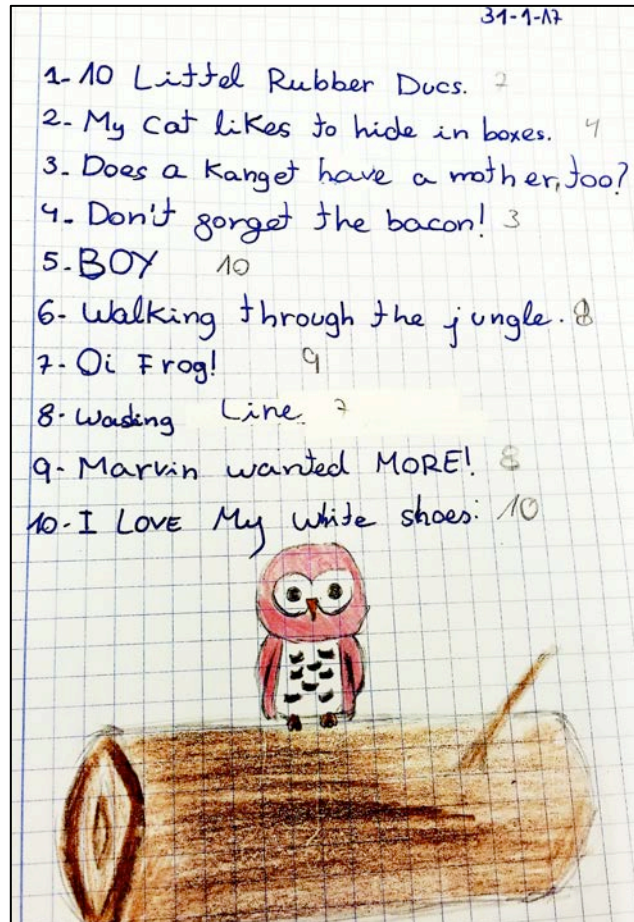 31-1-17
1-10 Littel Rubber Ducs. 7
2- My cat likes to hide in boxes. 4
3. Does a Kanget have a mother, too?
4- Don't gorget the bacon! 3
5. BOY 10
6- Walking through the jungle. 8
7- Oi Frog! 9
8- Wasling Line 7
9- Marvin wanted MORE! 8
10- I LOVE My white shoes: 10